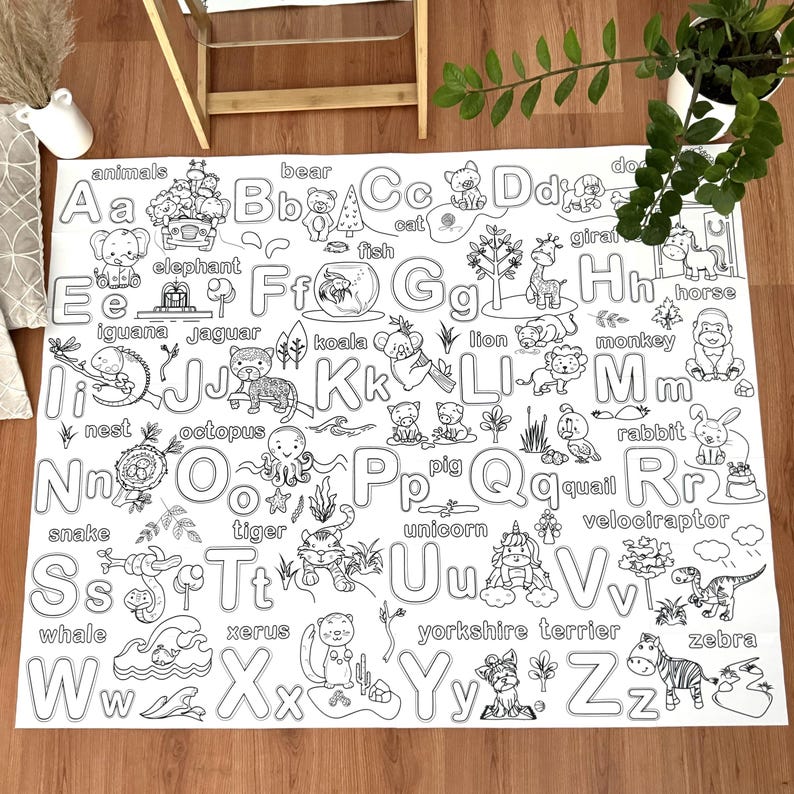 animals bear
Aa Bb Cc Dd
cat
elephant fish
Ee Ff Gg Hh
horse
iguana jaguar koala lion monkey
Ii Jj Kk Ll Mm
nest octopus pig quail rabbit
Nn Oo Pp Qq Rr
snake tiger unicorn velociraptor
Ss Tt Uu Vv
whale xerus yorkshire terrier zebra
Ww Xx Yy Zz